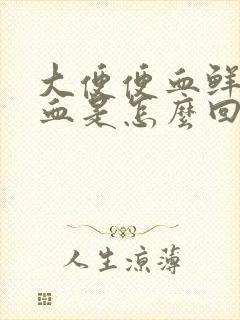 大便便血鲜
血是怎麼回
人生涼薄